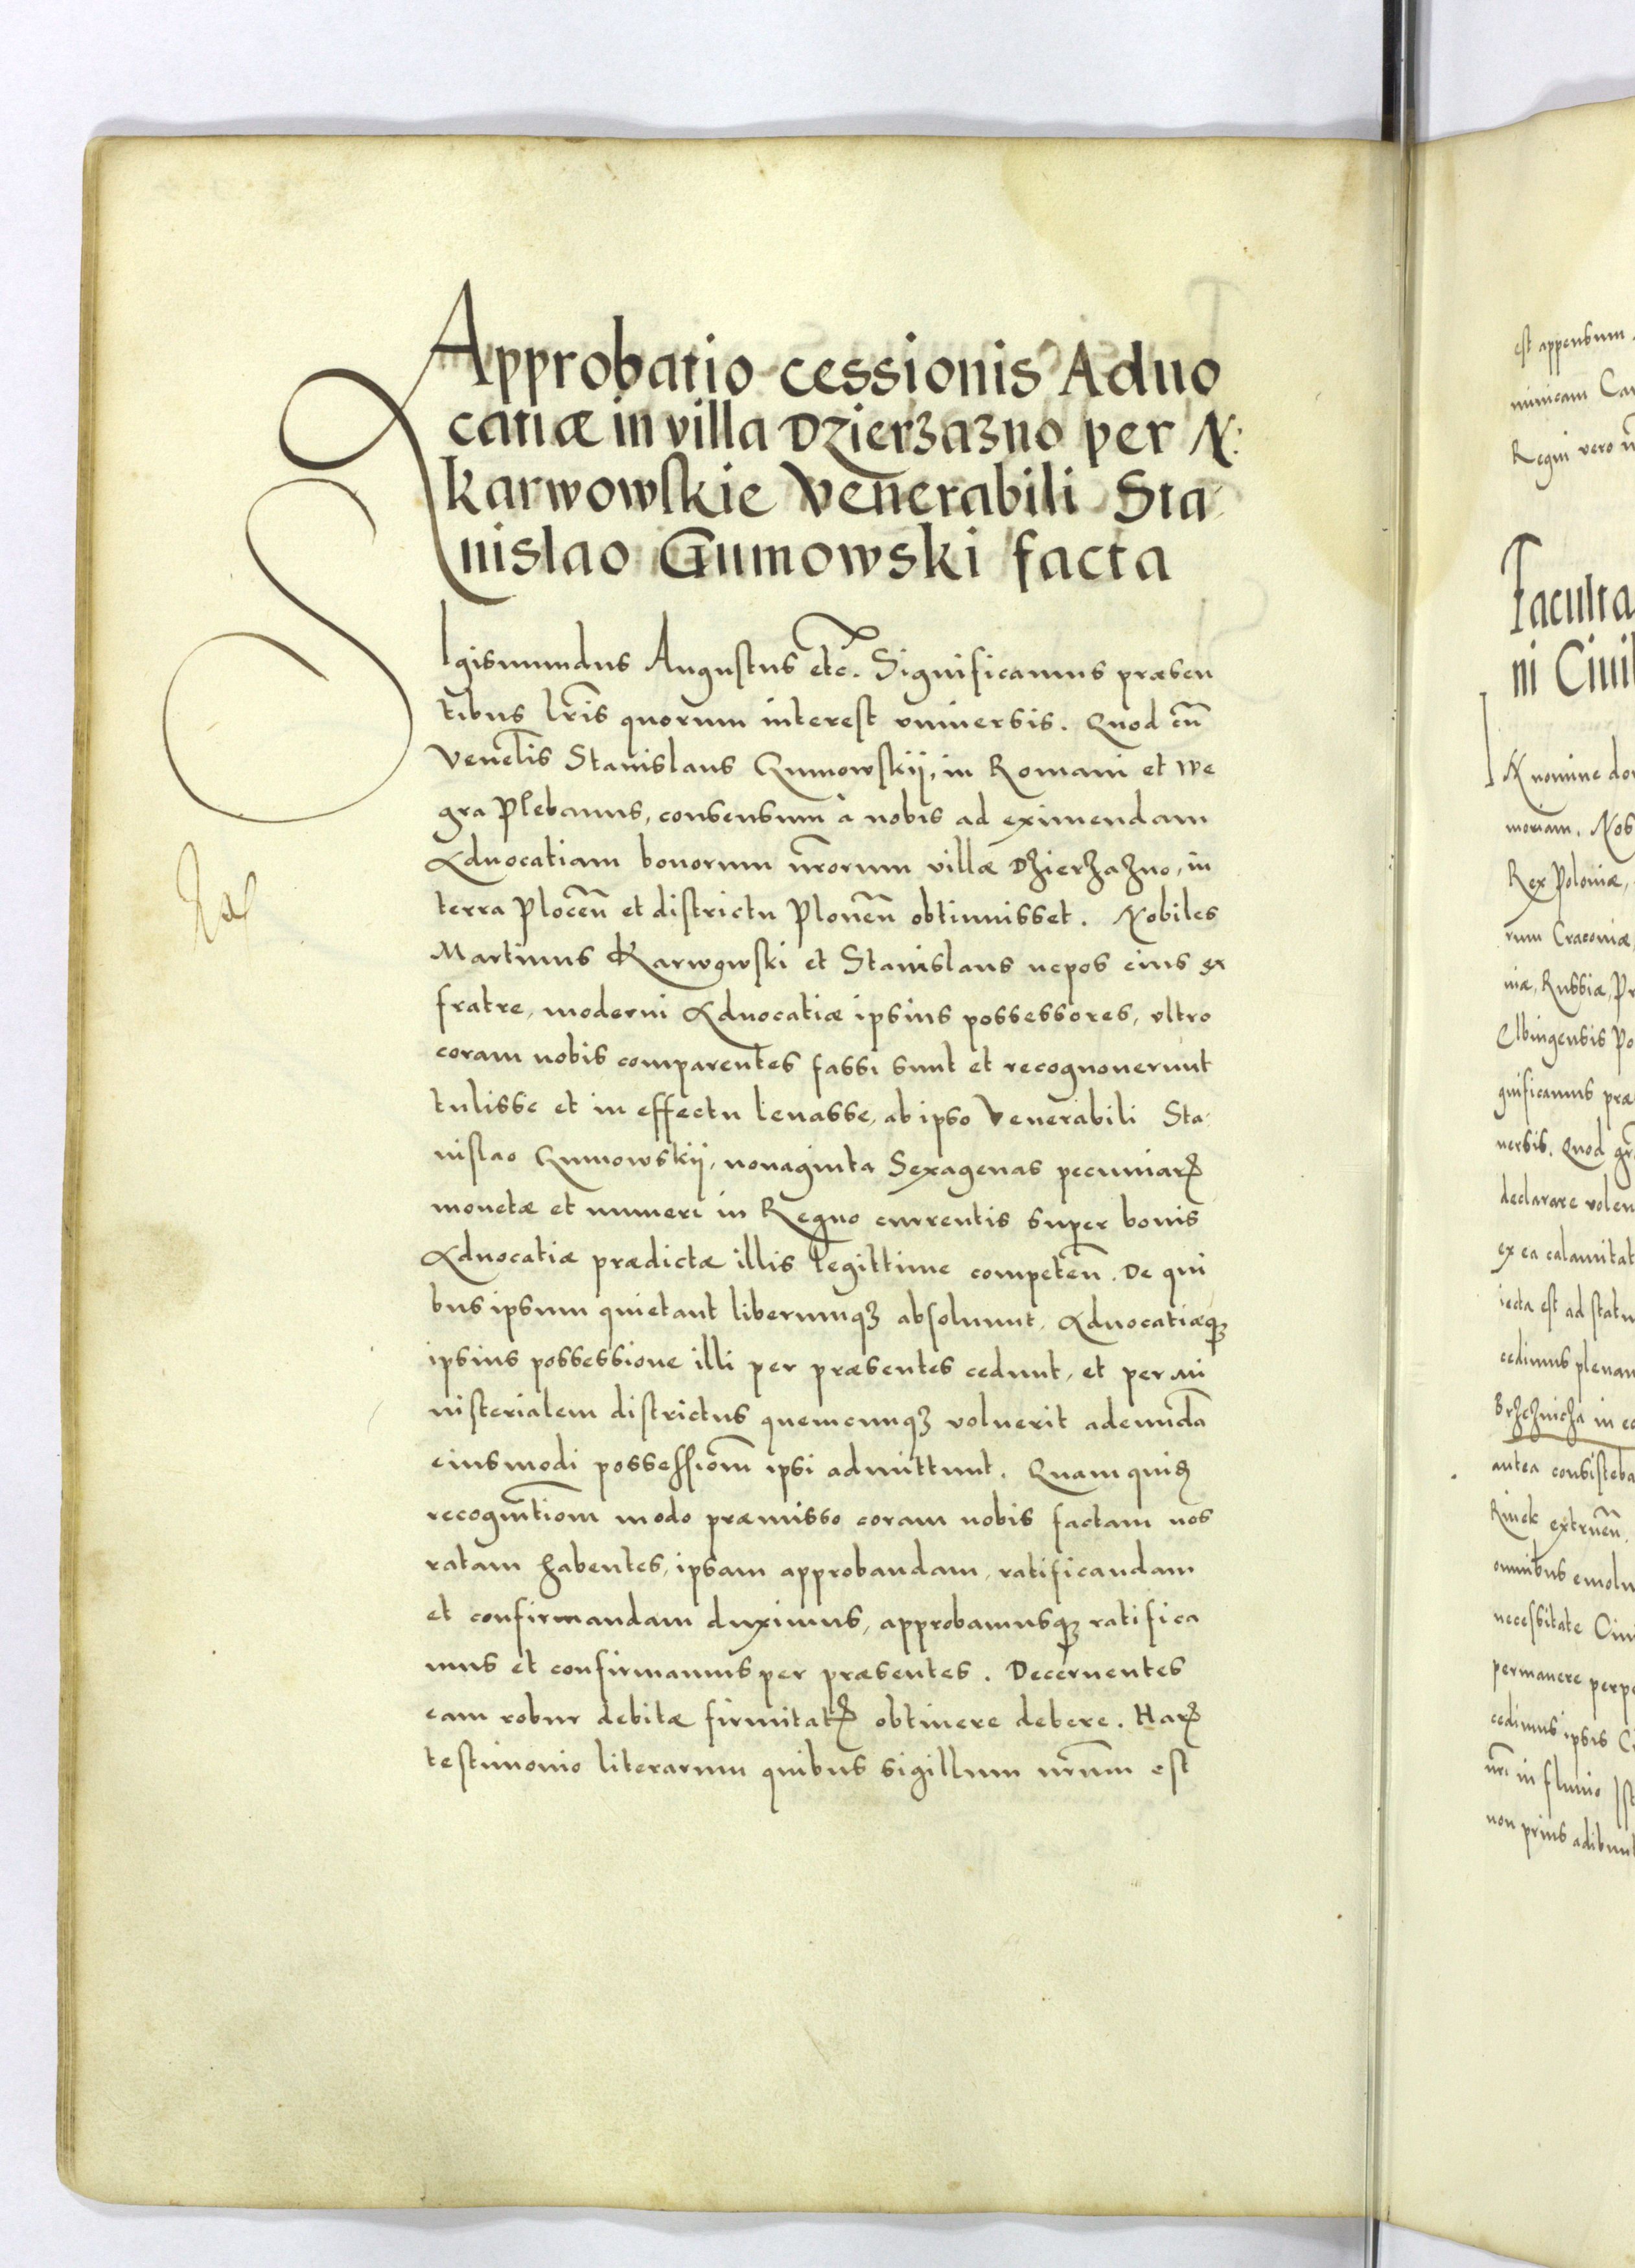 Approbatio cessionis Aduo
catiæ in villa Dzierzazno per N:
karwowskie Venerabili Sta-
nislao Gumowski facta
SIgismundus Augustus etc̃. Significamus præsen
tibus lr̃is quorum interest vniuersis. Quod cũ
Venel̃is Stanislaus Gumowskij, in Romani et We
gra Plebanus, consensum à nobis ad eximendam
Aduocatiam bonorum nr̃orum villæ Dzierzazno, in
terra Plocen̄ et districtu Plonen̄ obtinuisset. Nobiles
Martinus Karwowski et Stanislaus nepos eius ex
fratre, moderni Aduocatiæ ipsius possessores, vltro
coram nobis comparentes fassi sunt et recognouerunt
tulisse et in effectu leuasse, ab ipso Venerabili Sta-
nislao Gumowskij, nonaginta Sexagenas pecuniarꝝ
monetæ et numeri in Regno currentis super bonis
Aduocatiæ prædictæ illis legittime competen̄. De qui
bus ipsum quietant liberumqꝫ absoluunt, Aduocatiæqꝫ
ipsius possessione illi per præsentes cedunt, et per Mi
nisterialem districtus quemcunqꝫ voluerit adeund̃a
eiusmodi possessiom̃ ipsi admittunt. Quam quid̃
recognitiom̃ modo præmisso coram nobis factam nos
ratam habentes, ipsam approbandam, ratificandam
et confirmandam duximus, approbamusqꝫ ratifica
mus et confirmamus per præsentes. Decernentes
eam robur debitæ firmitatꝭ obtinere debere. Harꝝ
testimonio literarum quibus sigillum nr̃um est
est appensum.
Regni vero
Faculta
ni Ciuil
IN nomine do
moriam. Nos
Rex Poloniæ,
rum Cracouiæ,
uiæ, Russiæ, Pr
Elbingensis Po
gnificamus præ
uersis. Quod
declarare volen
ex ea calamitat
iecta est ad statu
cedimus plenam
Brzeznicza in e
antea consisteba
Rinek extruen̄.
omnibus emolu
necessitate Ciui
permanere perp
cedimus ipsis Ci
nr̃i in fluuio
non prius adibunt